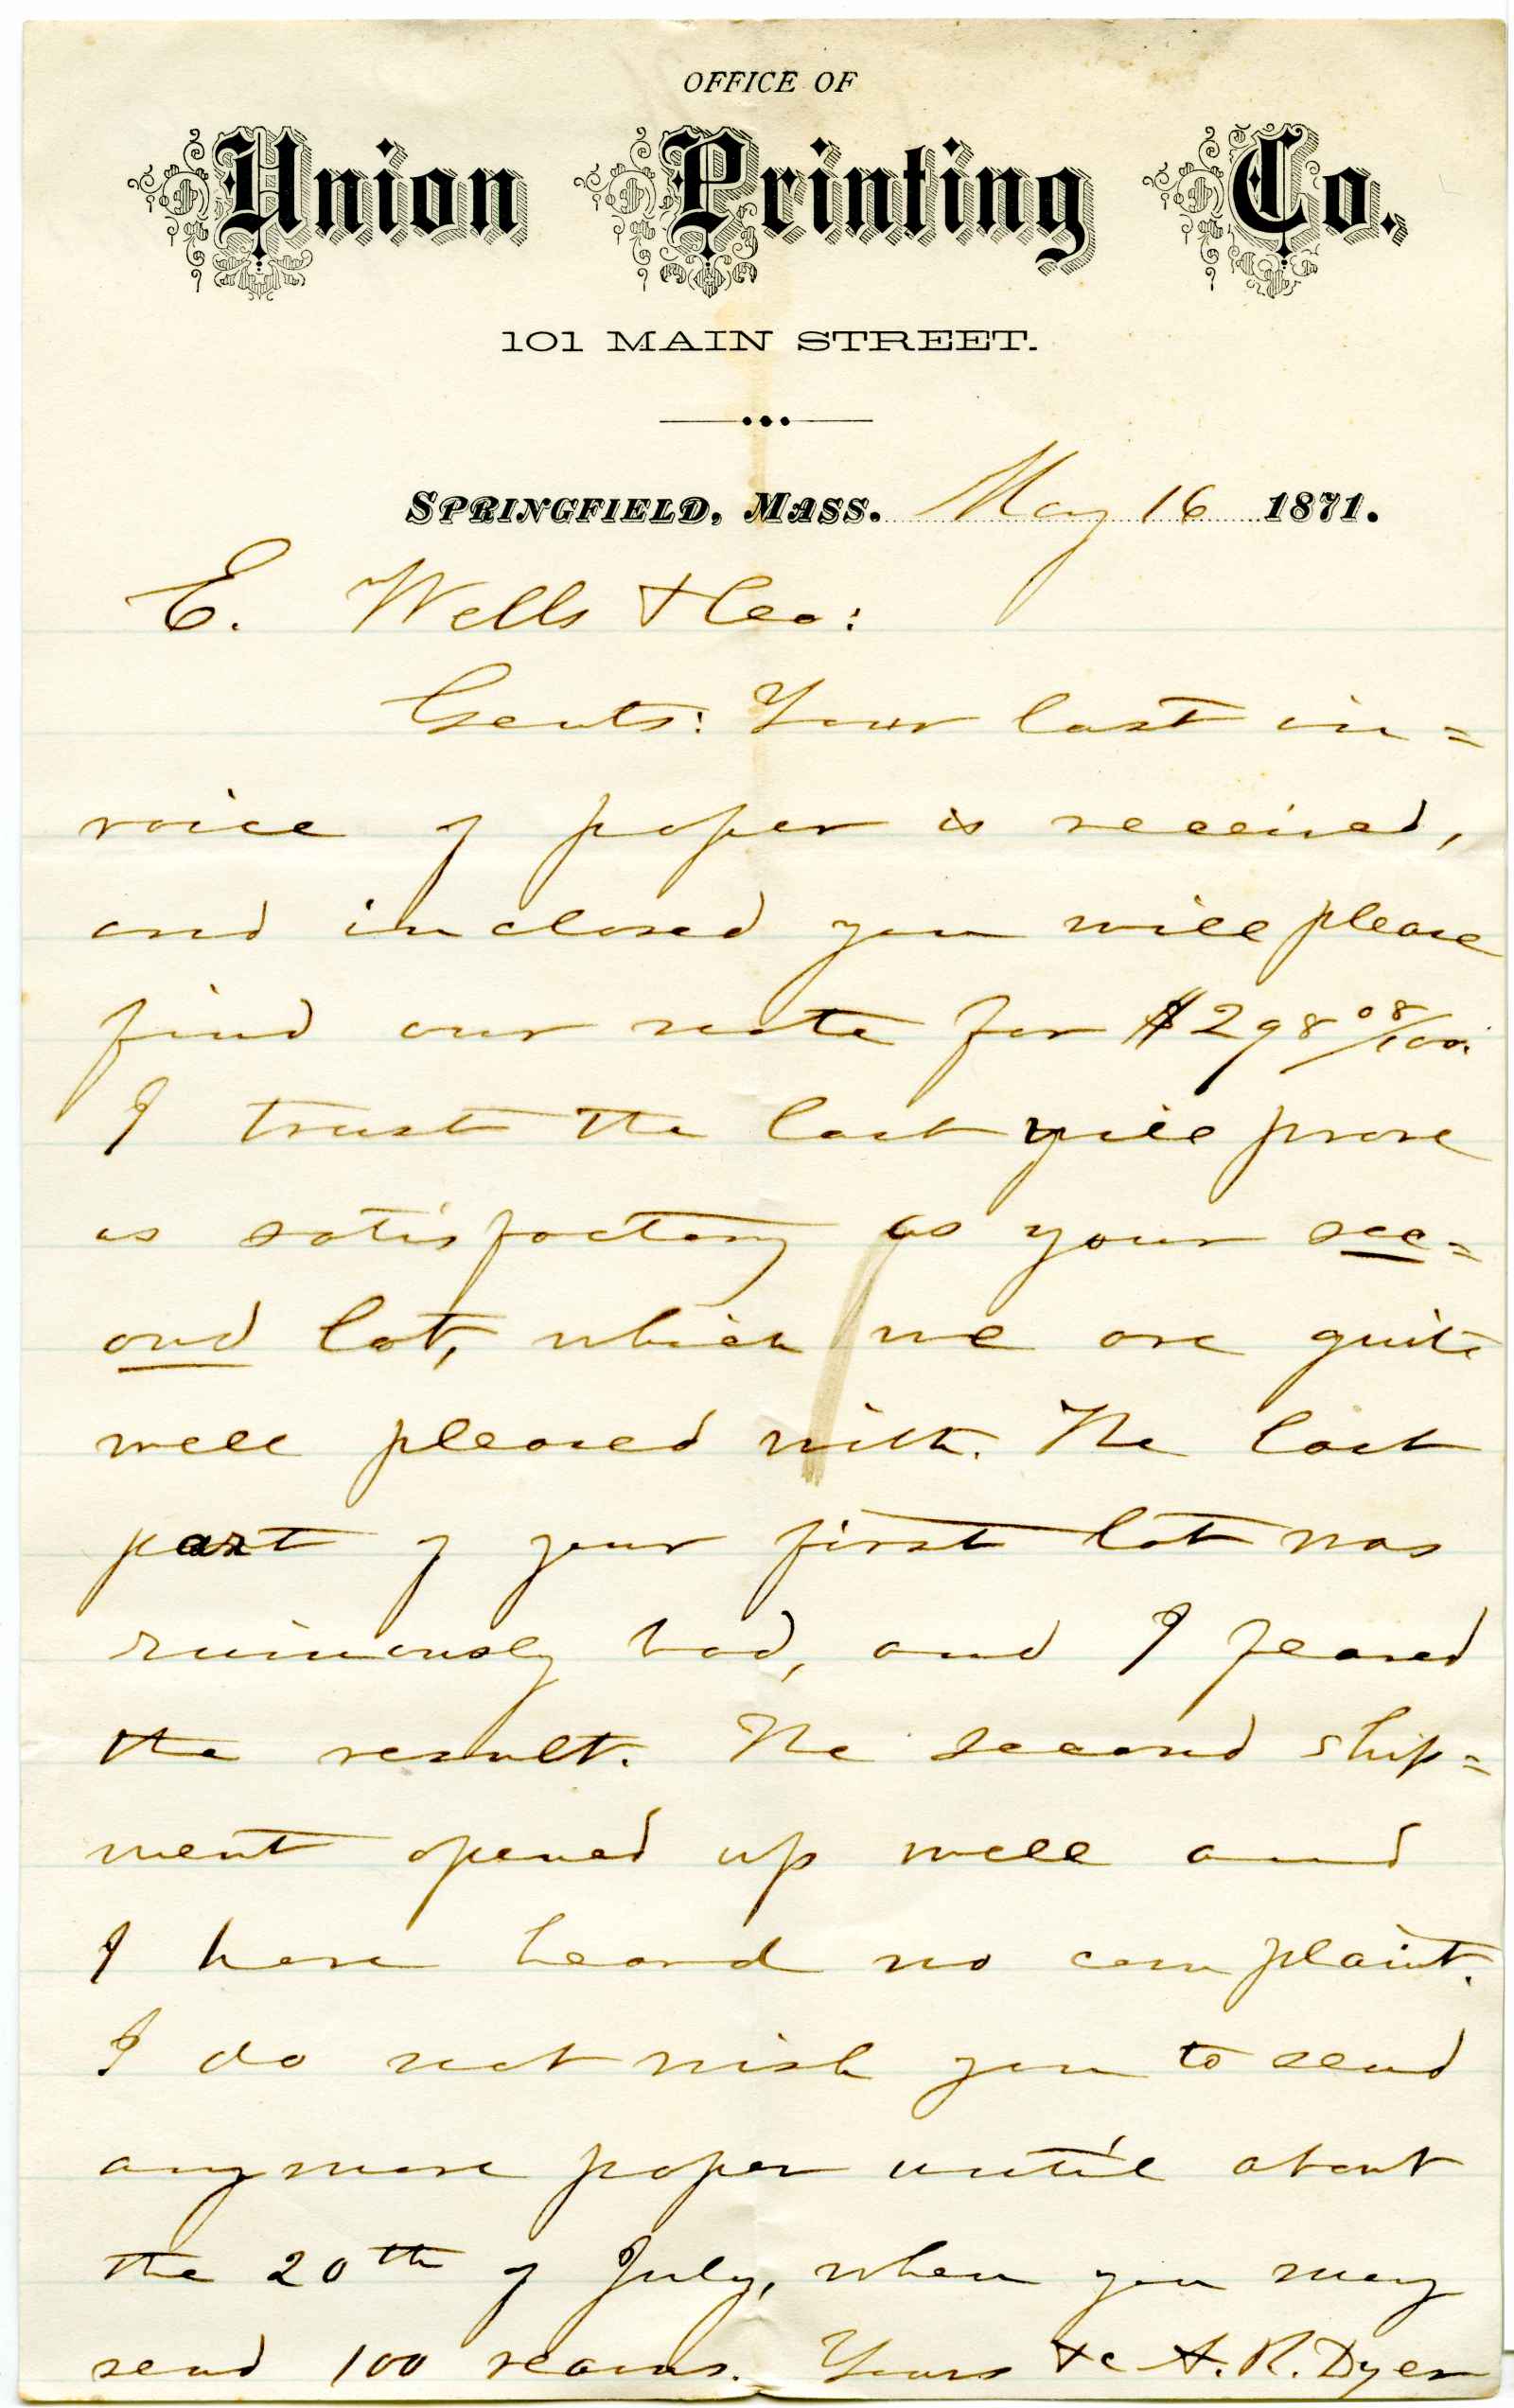 OFFICE OF
Union Printing Co.
101 MAIN STREET.
SPRINGFIELD, MASS. May 16 1871.
E. Wells & Co:
Gents: Your last in=
voice of paper is received,
and inclosed you will please
find our note for $298 08/100.
I trust the last will prove
as satisfactory as your sec=
ond lot, which we are quite
well pleased with. The last
part of your first lot was
ruinously bad, and I feared
the result. The second ship=
ment opened up well and
I have heard no complaint.
I do not wish you to send
any more paper until about
the 20th of July, when you may
send 100 reams. Yours &c A. R. Dyer